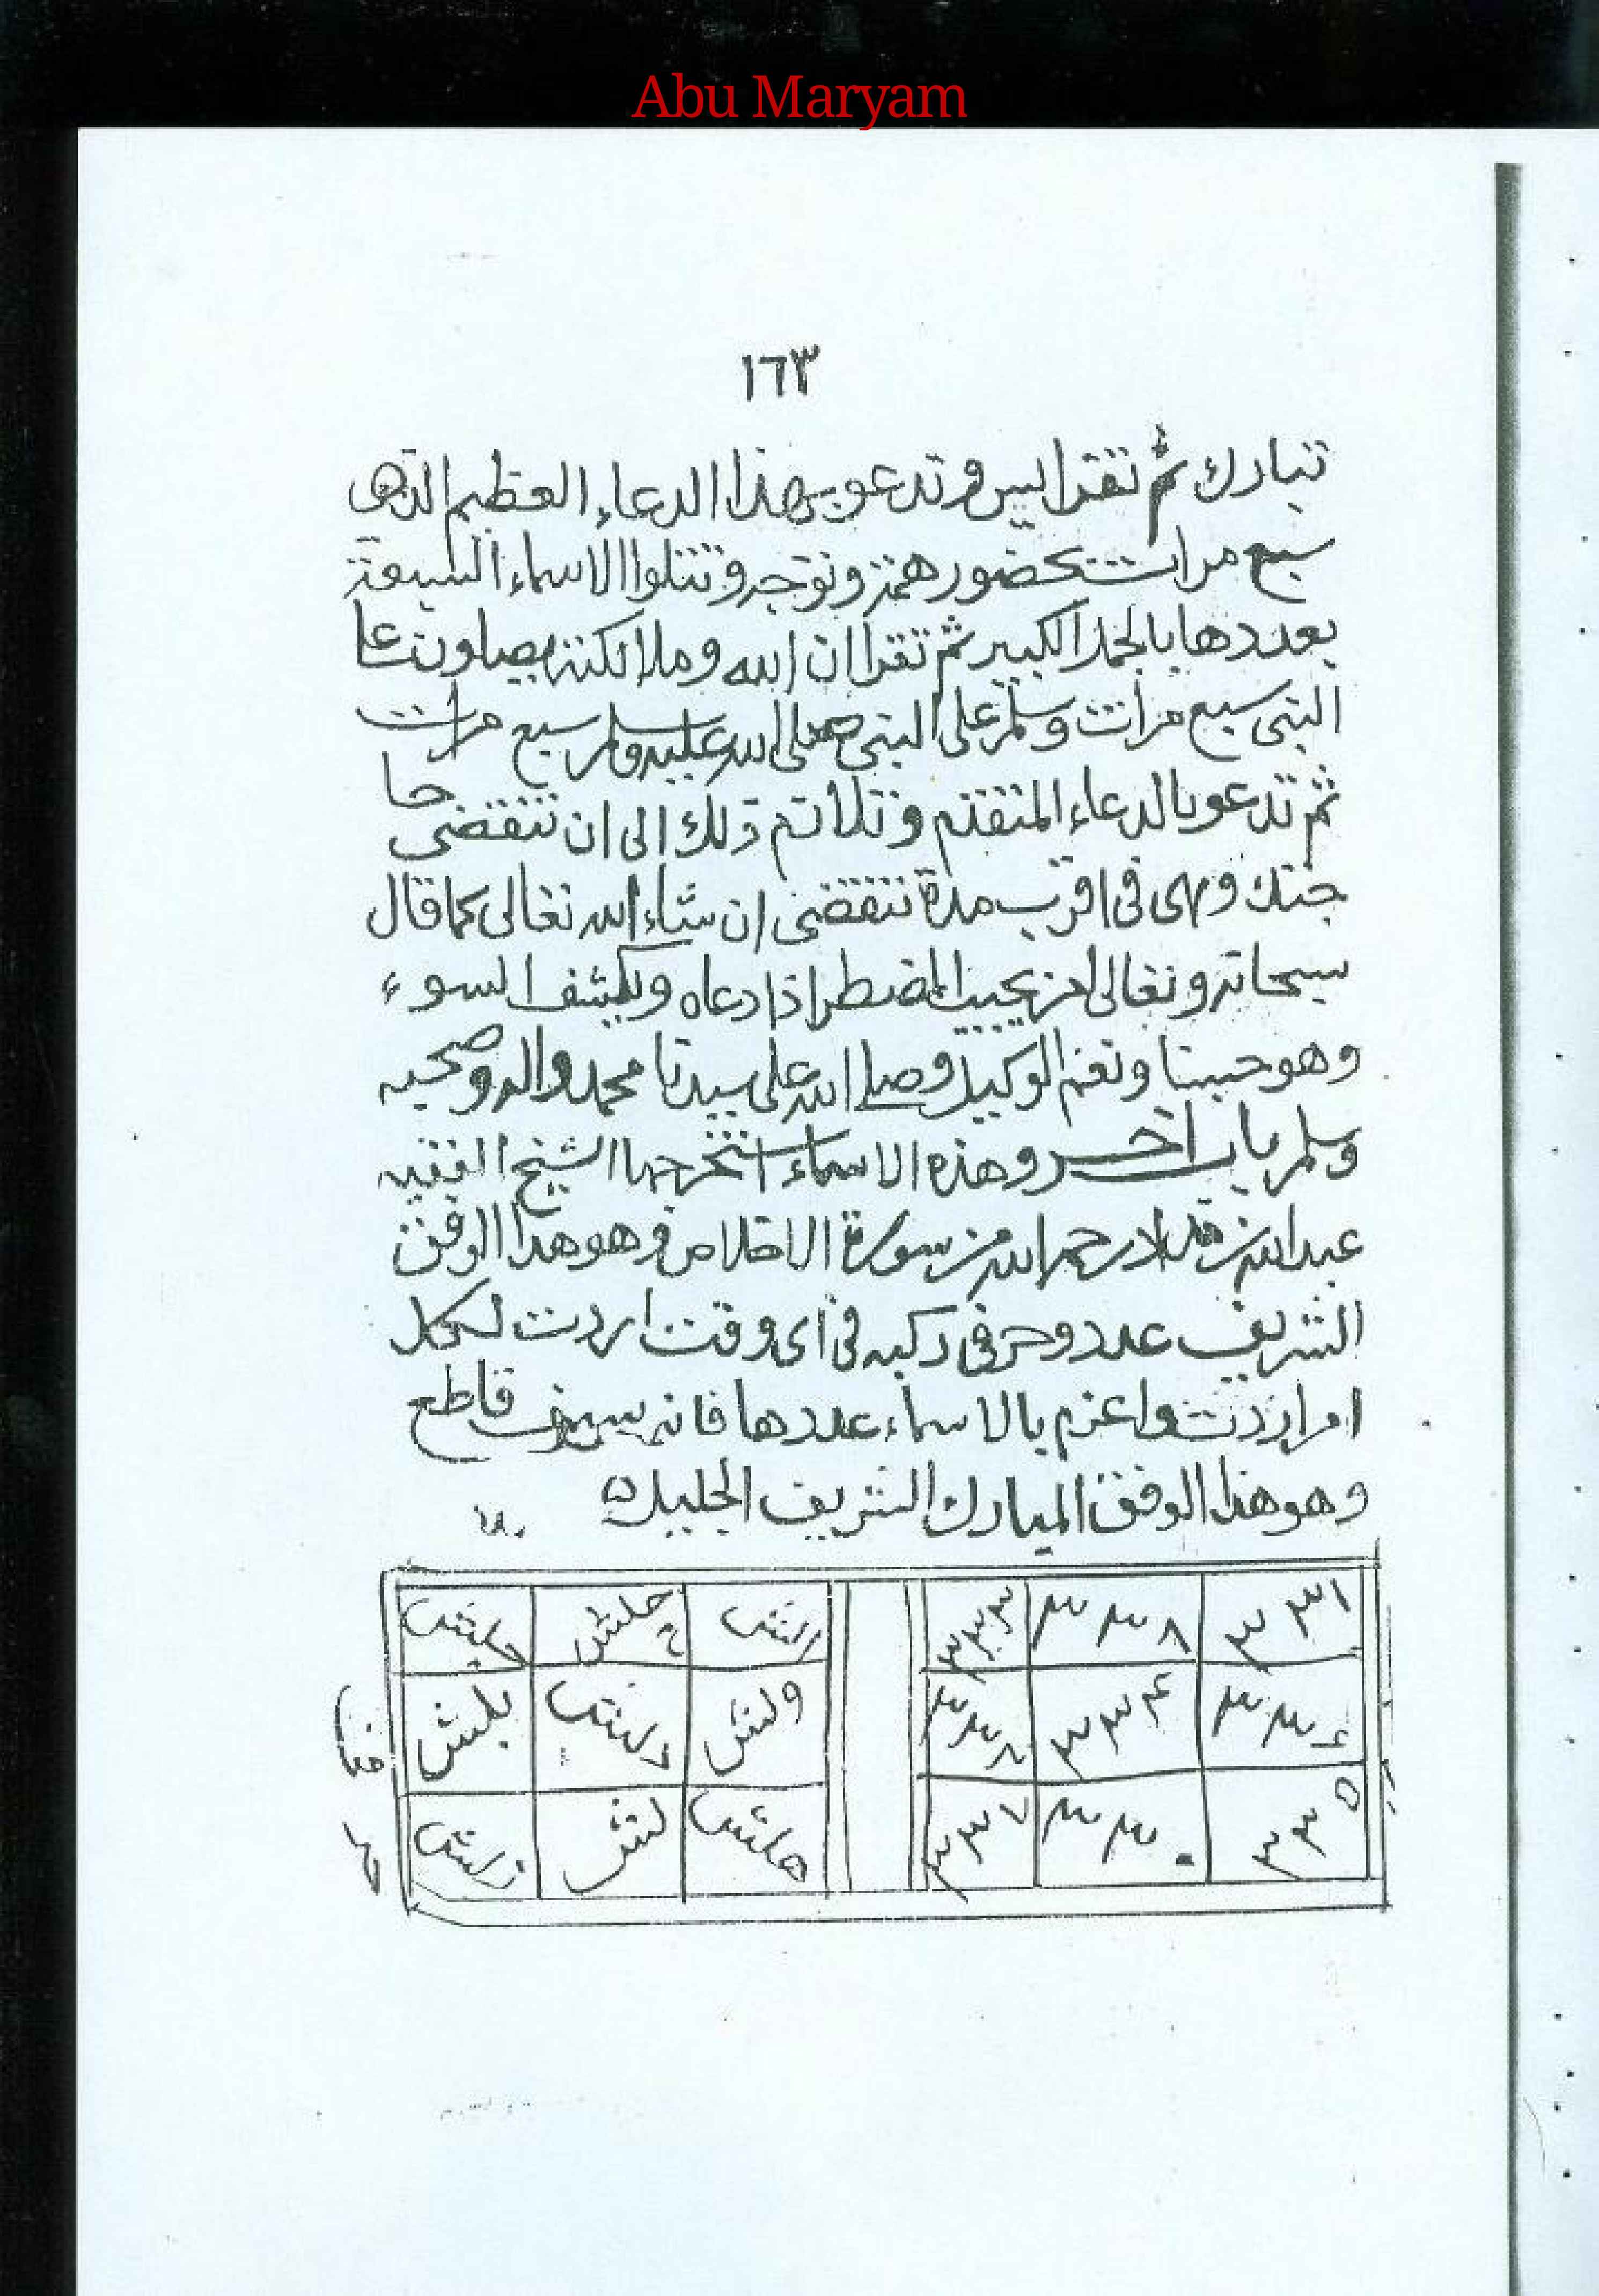 Abu Maryam
١٦٣
تبارك ثم تقرا يس وتدعو بهذا الدعاء العظيم الذى
سبع مرات بحضور همة وتوجه وتتلوا الاسماء السبعة
بعددها بالجمل الكبير ثم تقرا ان الله وملائكته يصلون على
النبى سبع مرات وسلم على النبى صلى الله عليه وسلم سبع مرات
ثم تدعو بالدعاء المتقدم وتلازم ذلك الى ان تنقضى حا
جتك وهى فى اقرب مدة تنقضى ان شاء الله تعالى كما قال
سبحانه وتعالى امن يجيب المضطر اذا دعاه ويكشف السوء
وهو حسبنا ونعم الوكيل وصلى الله على سيدنا محمد واله وصحبه
وسلم باب اخر وهذه الاسماء استخرجها الشيخ الفقيه
عبد الله بن رحمه الله من سورة الاخلاص وهو هذا الوفق
الشريف عدد وحرفى ركبه فى اى وقت اردت لكل
امر اردت واعزم بالاسماء عددها فانه سيف قاطع
وهو هذا الوفق المبارك الشريف الجليل
٣٣١ ٣٣٨ ٣٣٣ الش حلش جلش
٣٣٦ ٣٣٤ ٣٣٢ ولش دلش بلش
٣٣٥ ٣٣٠ ٣٣٧ هلش لش زلش